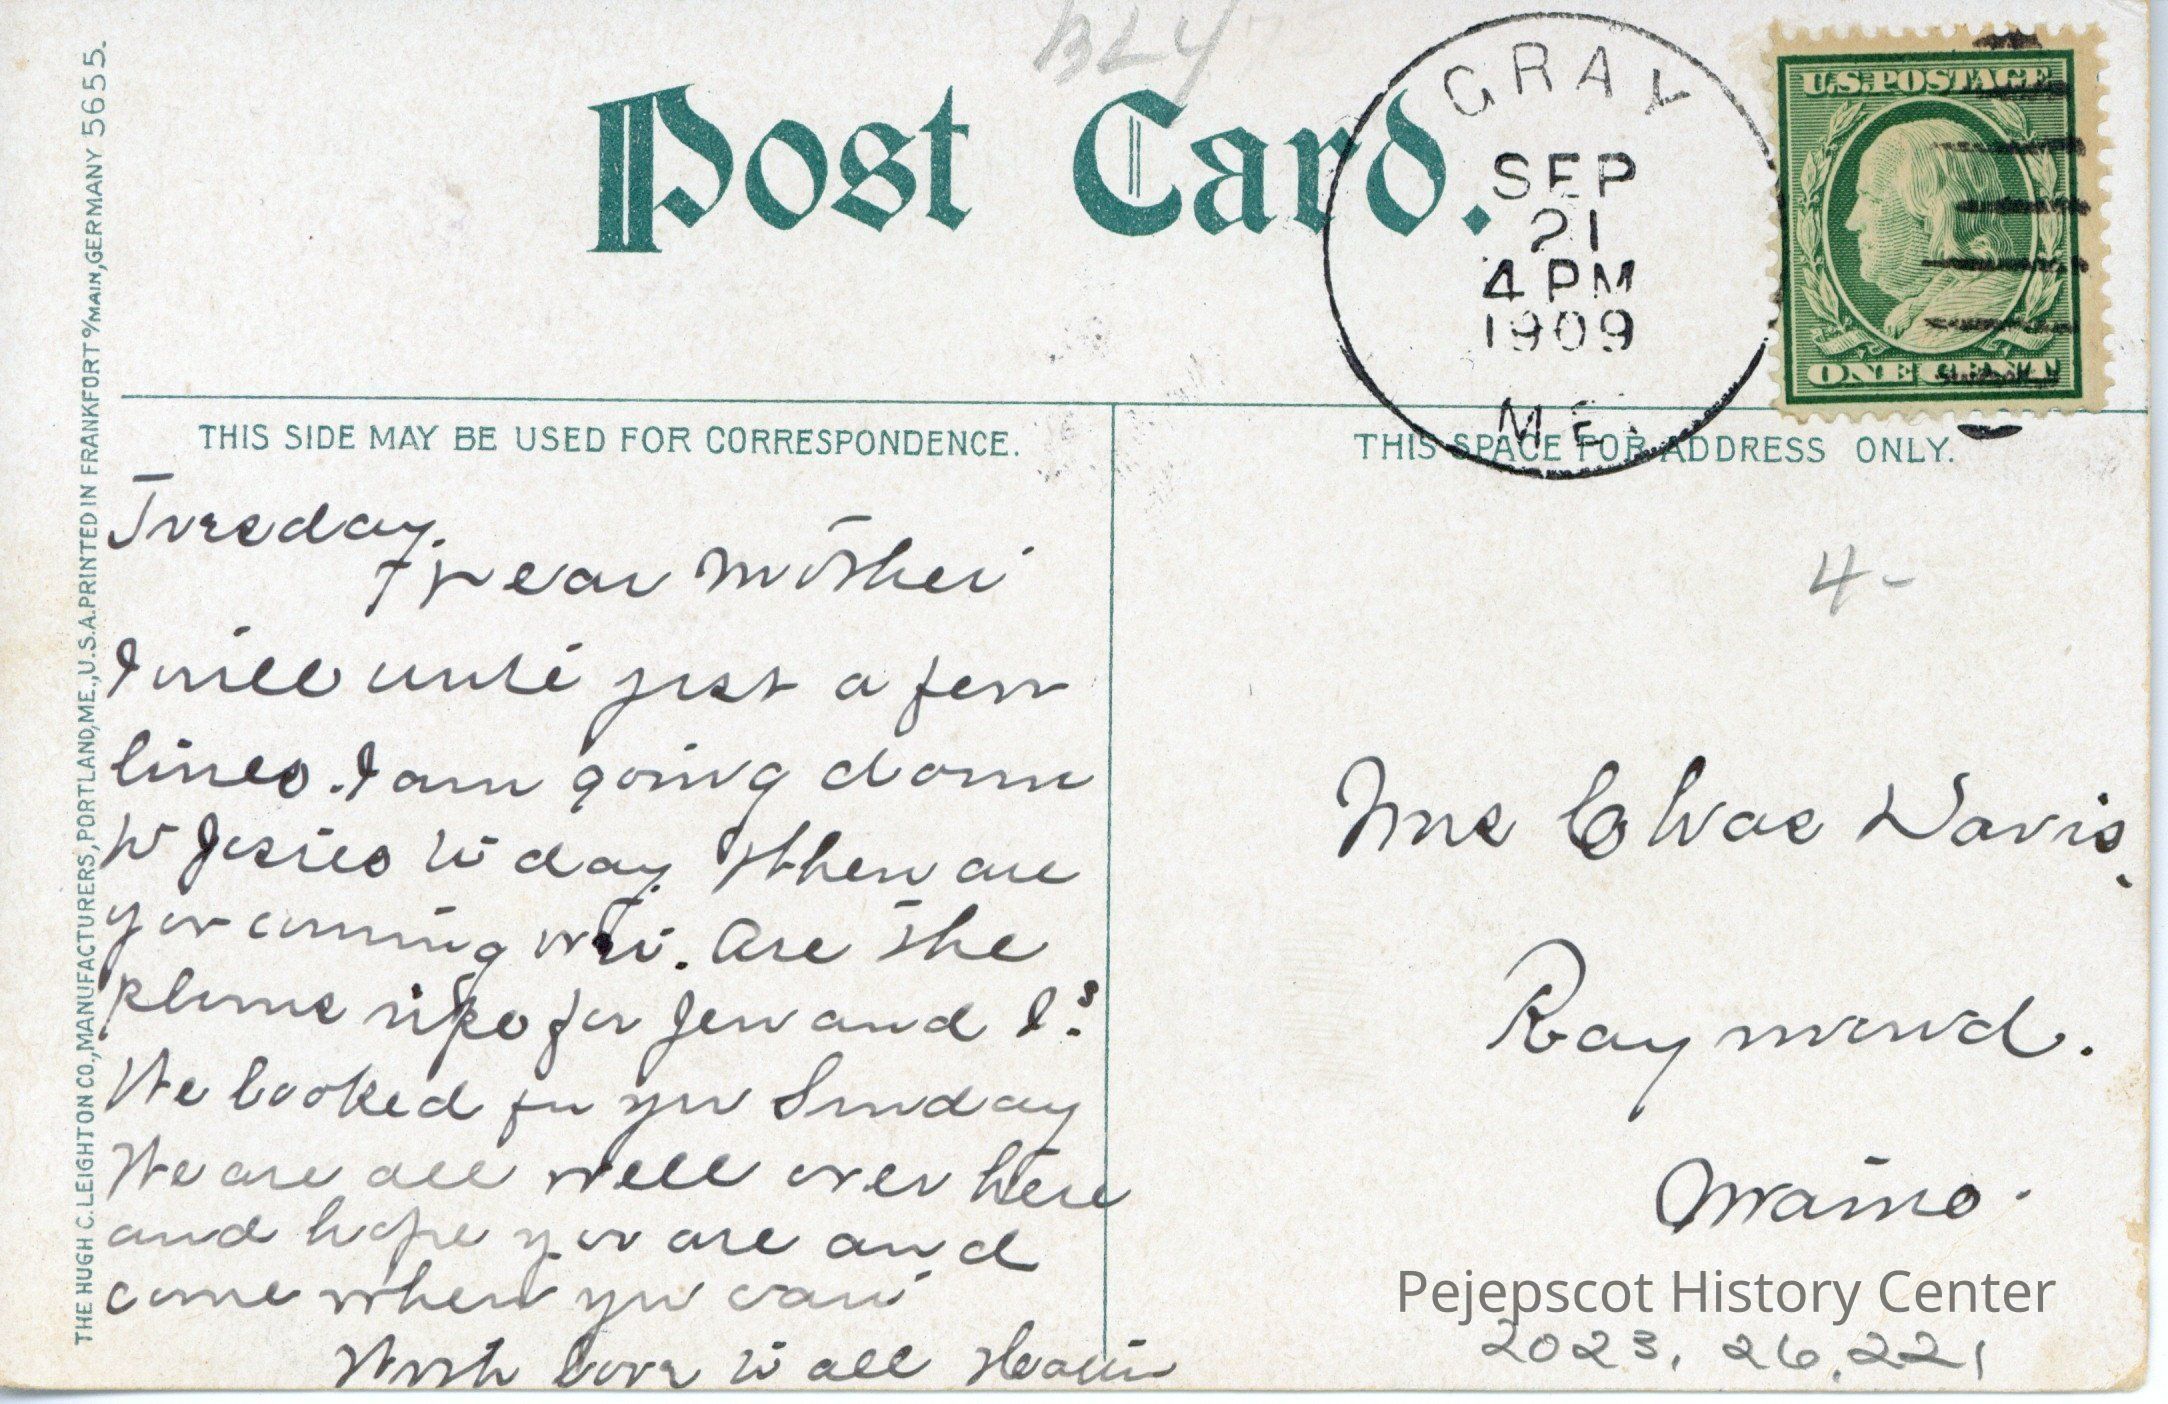 BLY
Post Card.
GRAY
SEP
21
4 PM
1909
ME.
U.S. POSTAGE
ONE CENT
THIS SIDE MAY BE USED FOR CORRESPONDENCE.
THIS SPACE FOR ADDRESS ONLY.
THE HUGH C. LEIGHTON CO., MANUFACTURERS, PORTLAND, ME., U.S.A. PRINTED IN FRANKFORT o/MAIN, GERMANY 5655.
Tuesday.
Dear Mother
I will write just a few
lines. I am going down
to Jesies to day. When are
you coming out. Are the
plums ripe for Jen and I?
We looked for you Sunday
We are all well over here
and hope you are and
come when you can
With love to all
4-
Mrs Chas Davis.
Raymond.
Maine.
Pejepscot History Center
2023.26.221